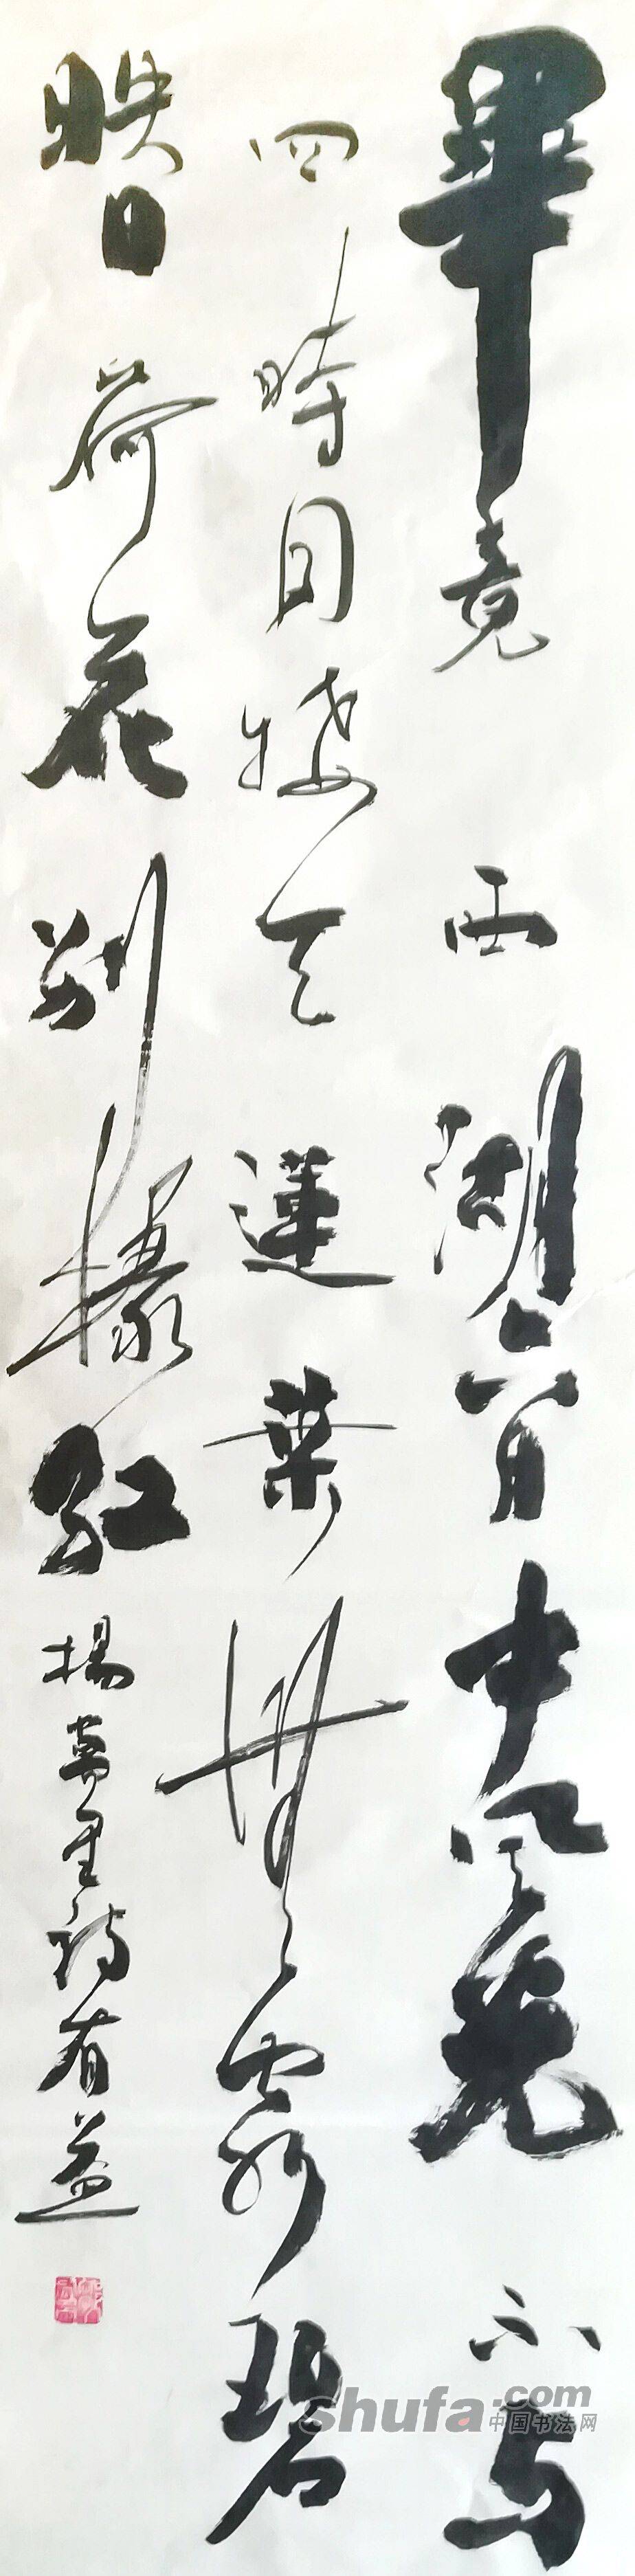 畢竟西湖六月中風光不与
四時同接天蓮葉無窮碧
映日荷花别樣紅 楊萬里詩有益
shufa.com
中国书法网